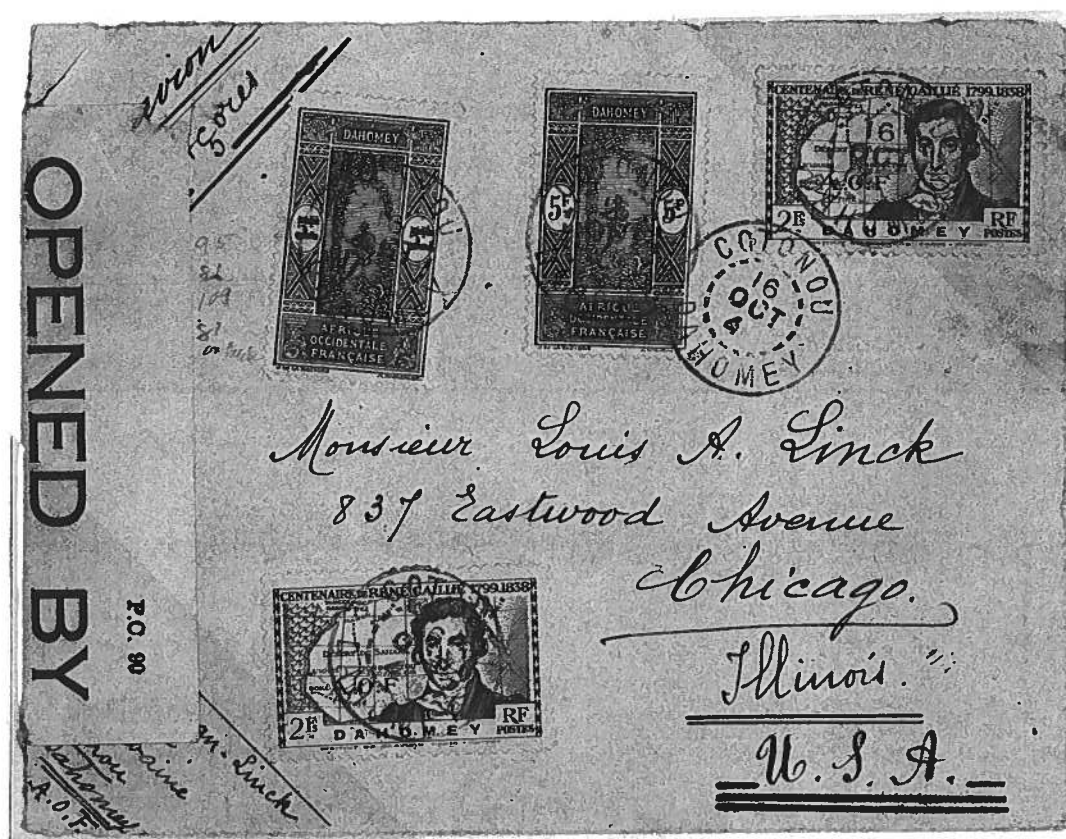 avion
OPENED BY
P.C. 90
DAHOMEY
AFRIQUE
OCCIDENTALE
FRANÇAISE
DAHOMEY
5F 5F
AFRIQUE
OCCIDENTALE
FRANÇAISE
CENTENAIRE DE RENÉ CAILLIÉ 1799.1838
A.O.F
2Fs
DAHOMEY
RF
POSTES
COTONOU
16
OCT
4
DAHOMEY
95
109
Monsieur Louis A. Linck
837 Eastwood Avenue
Chicago.
Illinois.
U. S. A.
CENTENAIRE DE RENÉ CAILLIÉ 1799.1838
A.O.F
2Fs
DAHOMEY
RF
POSTES
Linck
Dahomey
A.O.F.